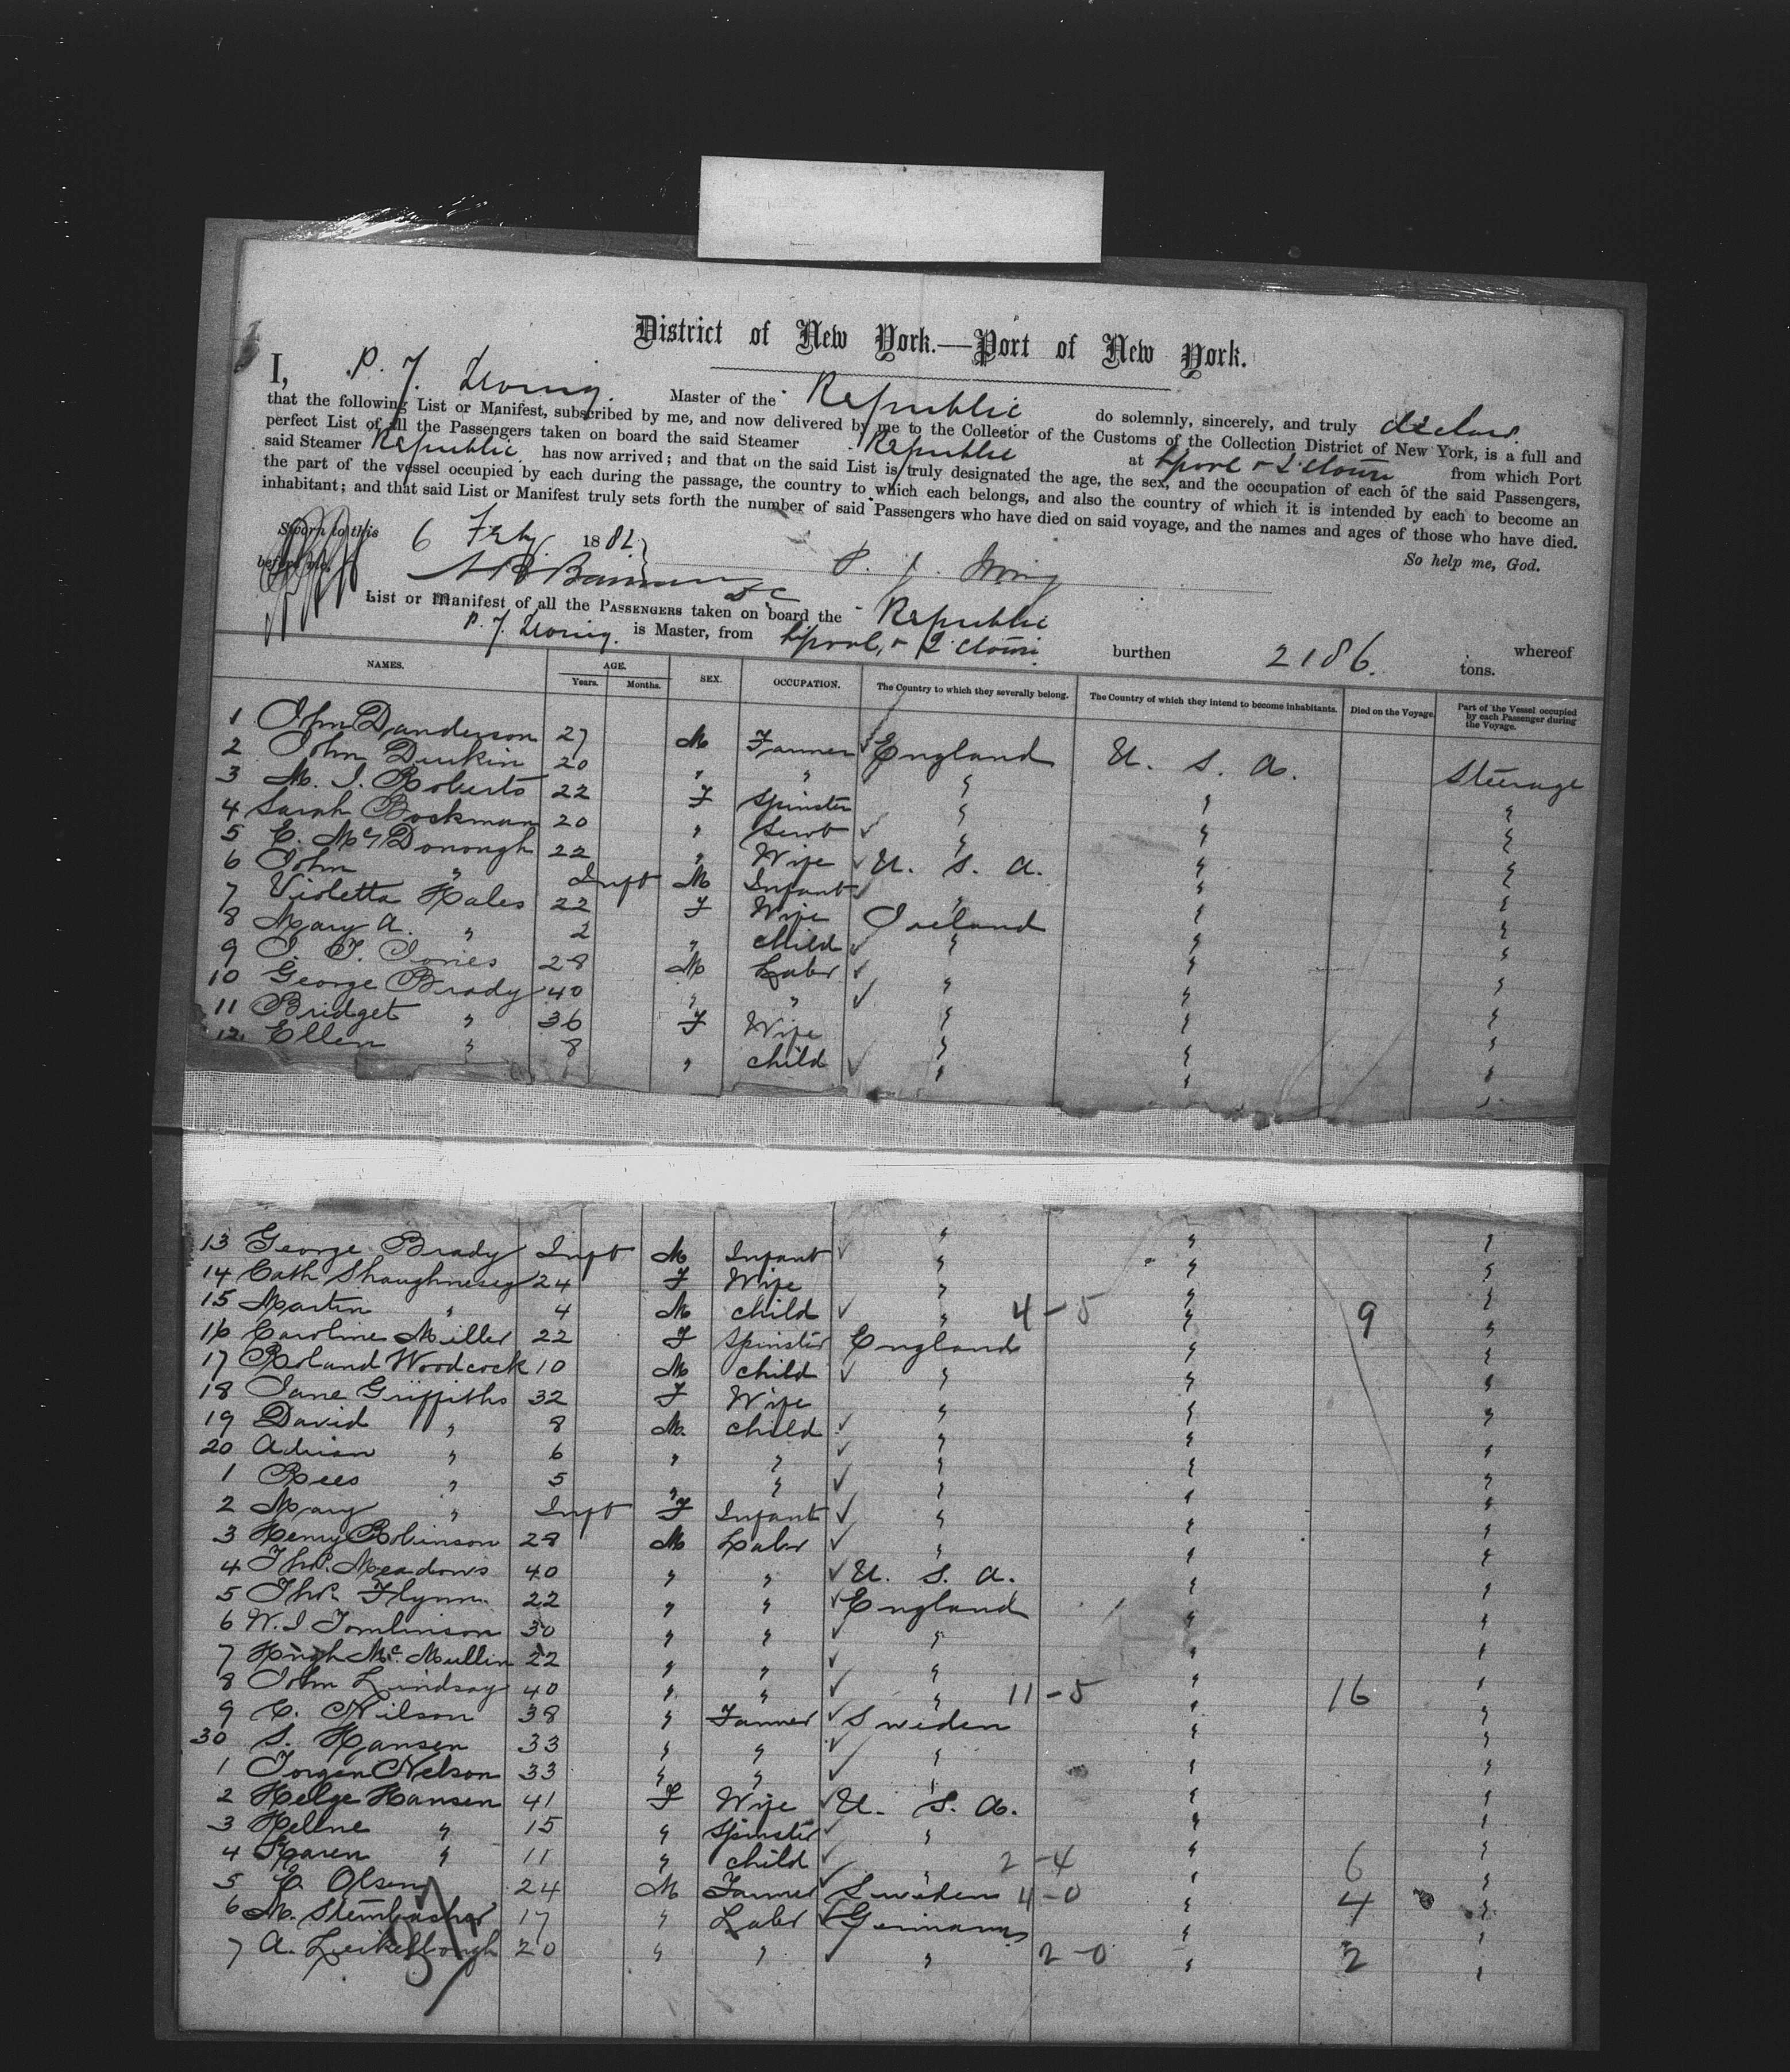 District of New York.—Port of New York.
I, P. J. Irving. Master of the Republic do solemnly, sincerely, and truly declare
that the following List or Manifest, subscribed by me, and now delivered by me to the Collector of the Customs of the Collection District of New York, is a full and
perfect List of all the Passengers taken on board the said Steamer Republic at Lpool & Q'town from which Port
said Steamer Republic has now arrived; and that on the said List is truly designated the age, the sex, and the occupation of each of the said Passengers,
the part of the vessel occupied by each during the passage, the country to which each belongs, and also the country of which it is intended by each to become an
inhabitant; and that said List or Manifest truly sets forth the number of said Passengers who have died on said voyage, and the names and ages of those who have died.
So help me, God.
Sworn to this 6 Feby 1882
before me. P. J. Irving
List or Manifest of all the PASSENGERS taken on board the Republic whereof
P. J. Irving. is Master, from Lpool, & Q'town burthen 2186. tons.
NAMES. AGE. Years. Months. SEX. OCCUPATION. The Country to which they severally belong. The Country of which they intend to become inhabitants. Died on the Voyage. Part of the Vessel occupied by each Passenger during the Voyage.
1 John Danderson 27 M Farmer England U. S. A. Steerage
2 John Durkin 20 " " " " "
3 M. J. Roberts 22 F Spinster " " "
4 Sarah Bockman 20 " Servt " " "
5 E. McDonough 22 " Wife U. S. A. " "
6 John " Inft M Infant " " "
7 Violetta Hales 22 F Wife Ireland " "
8 Mary A. " 2 " child " " "
9 J. T. Jones 28 M Labr " " "
10 George Brady 40 " " " " "
11 Bridget " 36 F Wife " " "
12 Ellen " 8 " child " " "
13 George Brady Inft M Infant " " "
14 Cath Shaughnesy 24 F Wife " " "
15 Martin " 4 M child " 4-5 " 9 "
16 Caroline Miller 22 F Spinster England " "
17 Roland Woodcock 10 M child " " "
18 Jane Griffiths 32 F Wife " " "
19 David " 8 M. child " " "
20 Adrian " 6 " " " " "
1 Rees " 5 " " " " "
2 Mary " Inft F Infant " " "
3 Henry Robinson 28 M Labr " " "
4 Thos. Meadows 40 " " U. S. A. " "
5 Thos. Flynn 22 " " England " "
6 W. J Tomlinson 30 " " " " "
7 Hugh Mc. Mullin 22 " " " " "
8 John Lindsay 40 " " " 11-5 " 16 "
9 C. Nilson 38 " Farmer Sweden " "
30 S. Hansen 33 " " " " "
1 Jorgen Nelson 33 " " " " "
2 Helge Hansen 41 F Wife U. S. A. " "
3 Hellne " 15 " Spinster " " "
4 Karen " 11 " child " 2-4 " 6 "
5 C. Olsen 24 M Farmer Sweden 4-0 " 4 "
6 M. 17 " Labr Germany " "
7 A. 20 " " " 2-0 " 2 "